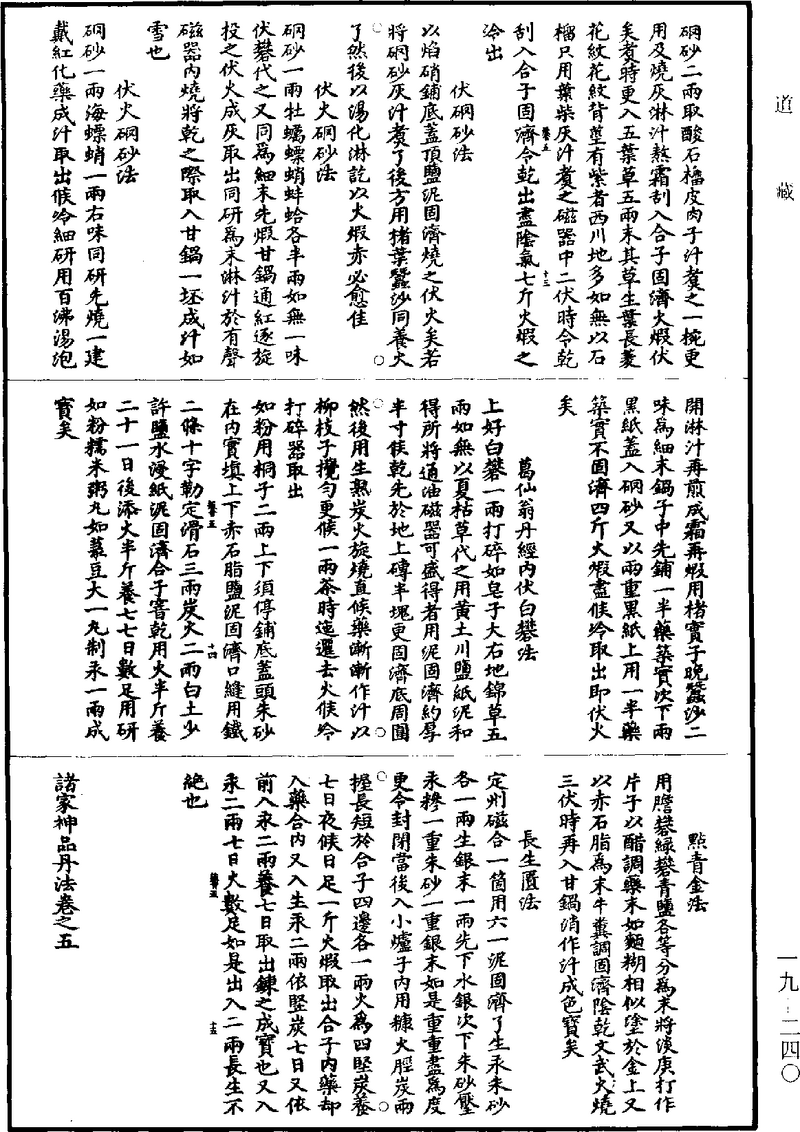 道藏
硇砂二兩取酸石榴皮肉子汁煮之一椀更
用及燒灰淋汁熬霜刮入合子固濟火煅伏
矣煮時更入五葉草五兩末其草生葉長菱
花紋花紋背莖有紫者西川地多如無以石
榴只用葉柴灰汁煮之磁器中二伏時令乾
刮入合子固濟令乾出盡陰氣七斤火煅之
冷出
伏硇砂法
以焰硝鋪底蓋頂鹽泥固濟燒之伏火矣若
將硇砂灰汁煮了後方用楮葉蠶沙同養火
了然後以湯化淋訖以火煅赤必愈佳
伏火硇砂法
硇砂一兩牡蠣螵蛸蚌蛤各半兩如無一味
伏礬代之又同爲細末先煅甘鍋通紅逐旋
投之伏火成灰取出同研爲末淋汁於有聲
磁器内燒將乾之際取入甘鍋一坯成汁如
雪也
伏火硇砂法
硇砂一兩海螵蛸一兩右味同研先燒一建
戴紅化藥成汁取出候冷細研用百沸湯泡
開淋汁再煎成霜再煅用楮實子晚蠶沙二
味爲細末鍋子中先鋪一半藥築實次下兩
黑紙蓋入硇砂又以兩重黑紙上用一半藥
築實不固濟四斤火煅盡候冷取出即伏火
矣
葛仙翁丹經内伏白礬法
上好白礬一兩打碎如皂子大右地錦草五
兩如無以夏枯草代之用黄土川鹽紙泥和
得所將通油磁器可盛得者用泥固濟約厚
半寸候乾先於地上磚半塊更固濟底周圍
然後用生熟炭火旋燒直候藥漸漸作汁以
柳枝子攪勻更候一兩茶時迤邐去火候冷
打碎器取出
如粉用桐子二兩上下須停鋪底蓋頭朱砂
在内實填上下赤石脂鹽泥固濟口縫用鐵
二條十字勒定滑石三兩炭火二兩白土少
許鹽水浸紙泥固濟合子窨乾用火半斤養
二十一日後添火半斤養七七日數足用研
如粉糯米粥丸如菉豆大一丸制汞一兩成
寶矣
點青金法
用膽礬緑礬青鹽各等分爲末將淡庚打作
片子以醋調藥末如麵糊相似塗於金上又
以赤石脂爲末牛糞調固濟陰乾文武火燒
三伏時再入甘鍋消作汁成色寶矣
長生匱法
定州磁合一箇用六一泥固濟了生汞朱砂
各一兩生銀末一兩先下水銀次下朱砂壓
汞糝一重朱砂一重銀末如是重重盡爲度
更令封閉當後入小爐子内用糠火脛炭兩
握長短於合子四邊各一兩火爲四堅炭養
七日夜候日足一斤火煅取出合子内藥却
入藥合内又入生汞二兩依堅炭七日又依
前入汞二兩養七日取出鍊之成寶也又入
汞二兩七日火數足如是出入二兩長生不
絶也
諸家神品丹法卷之五
一九-二四〇